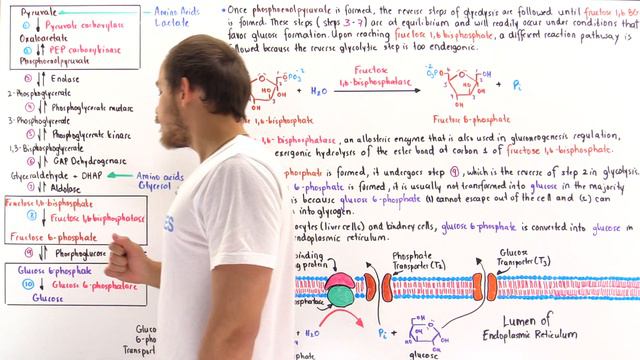 Pyruvate
① Pyruvate carboxylase
Oxaloacetate
② PEP carboxykinase
Phosphoenolpyruvate
③ Enolase
2-Phosphoglycerate
④ Phosphoglycerate mutase
3-Phosphoglycerate
⑤ Phosphoglycerate kinase
1,3-Bisphosphoglycerate
⑥ GAP Dehydrogenase
Glyceraldehyde + DHAP
⑦ Aldolase
Fructose 1,6-bisphosphate
⑧ Fructose 1,6-bisphosphatase
Fructose 6-phosphate
⑨ Phosphogluco
Glucose 6-phosphate
⑩ Glucose 6-phosphatase
Glucose
Amino Acids
Lactate
Amino acids
Glycerol
• Once phosphoenolpyruvate is formed, the reverse steps of glycolysis are followed until fructose 1,6 BP
is formed. These steps (steps 3-7) are at equilibrium and will readily occur under conditions that
favor glucose formation. Upon reaching fructose 1,6 bisphosphate, a different reaction pathway is
followed because the reverse glycolytic step is too endergonic.
+ H₂O
Fructose
1,6-bisphosphatase
+ Pi
1,6-bisphosphate
Fructose 6-phosphate
1,6-bisphosphatase, an allosteric enzyme that is also used in gluconeogenesis regulation,
exergonic hydrolysis of the ester bond at carbon 1 of fructose 1,6-bisphosphate.
phosphate is formed, it undergoes step ⑨, which is the reverse of step 2 in glycolysis.
6-phosphate is formed, it is usually not transformed into glucose in the majority
is because glucose 6-phosphate (1) cannot escape out of the cell and (2) can
into glycogen.
ocytes (liver cells) and kidney cells, glucose 6-phosphate is converted into glucose in
endoplasmic reticulum.
binding
ng protein
Phosphate
Transporter (T2)
Glucose
Transporter (T3)
phatase
+ H₂O
Pi +
glucose
Lumen of
Endoplasmic Reticulum
Gluco
6-pho
Transport
phate